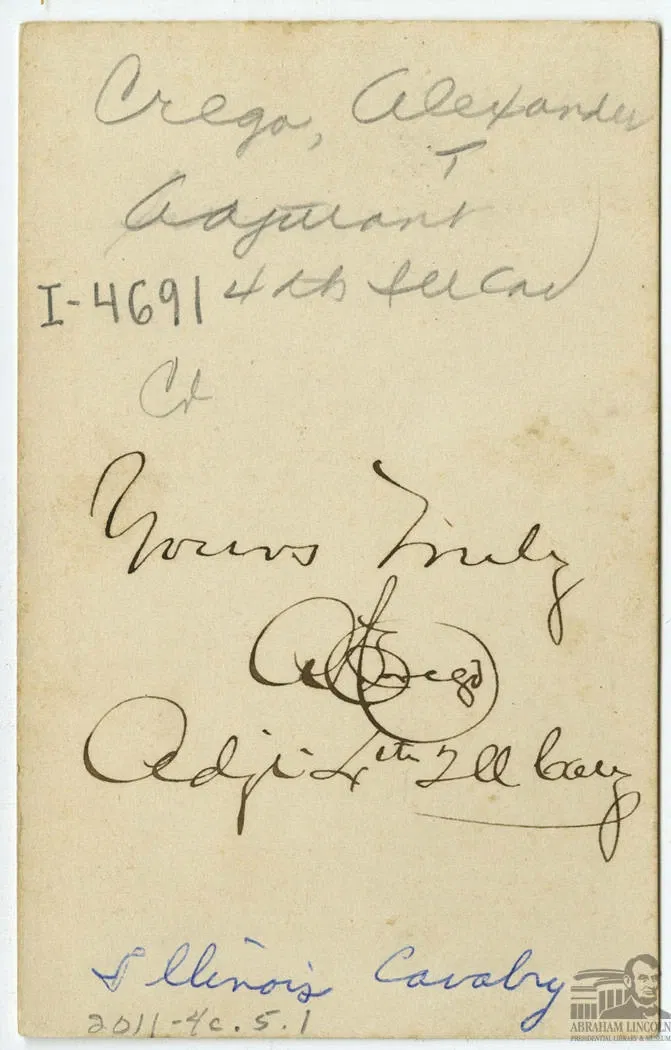 Crego, Alexander
T
Adjutant
I-4691 4th Ill Cav
Yours Truly
A T Crego
Adjt 4th Ill Cavy
Illinois Cavalry
2011-4c.5.1
ABRAHAM LINCOLN
PRESIDENTIAL LIBRARY & MUSEUM